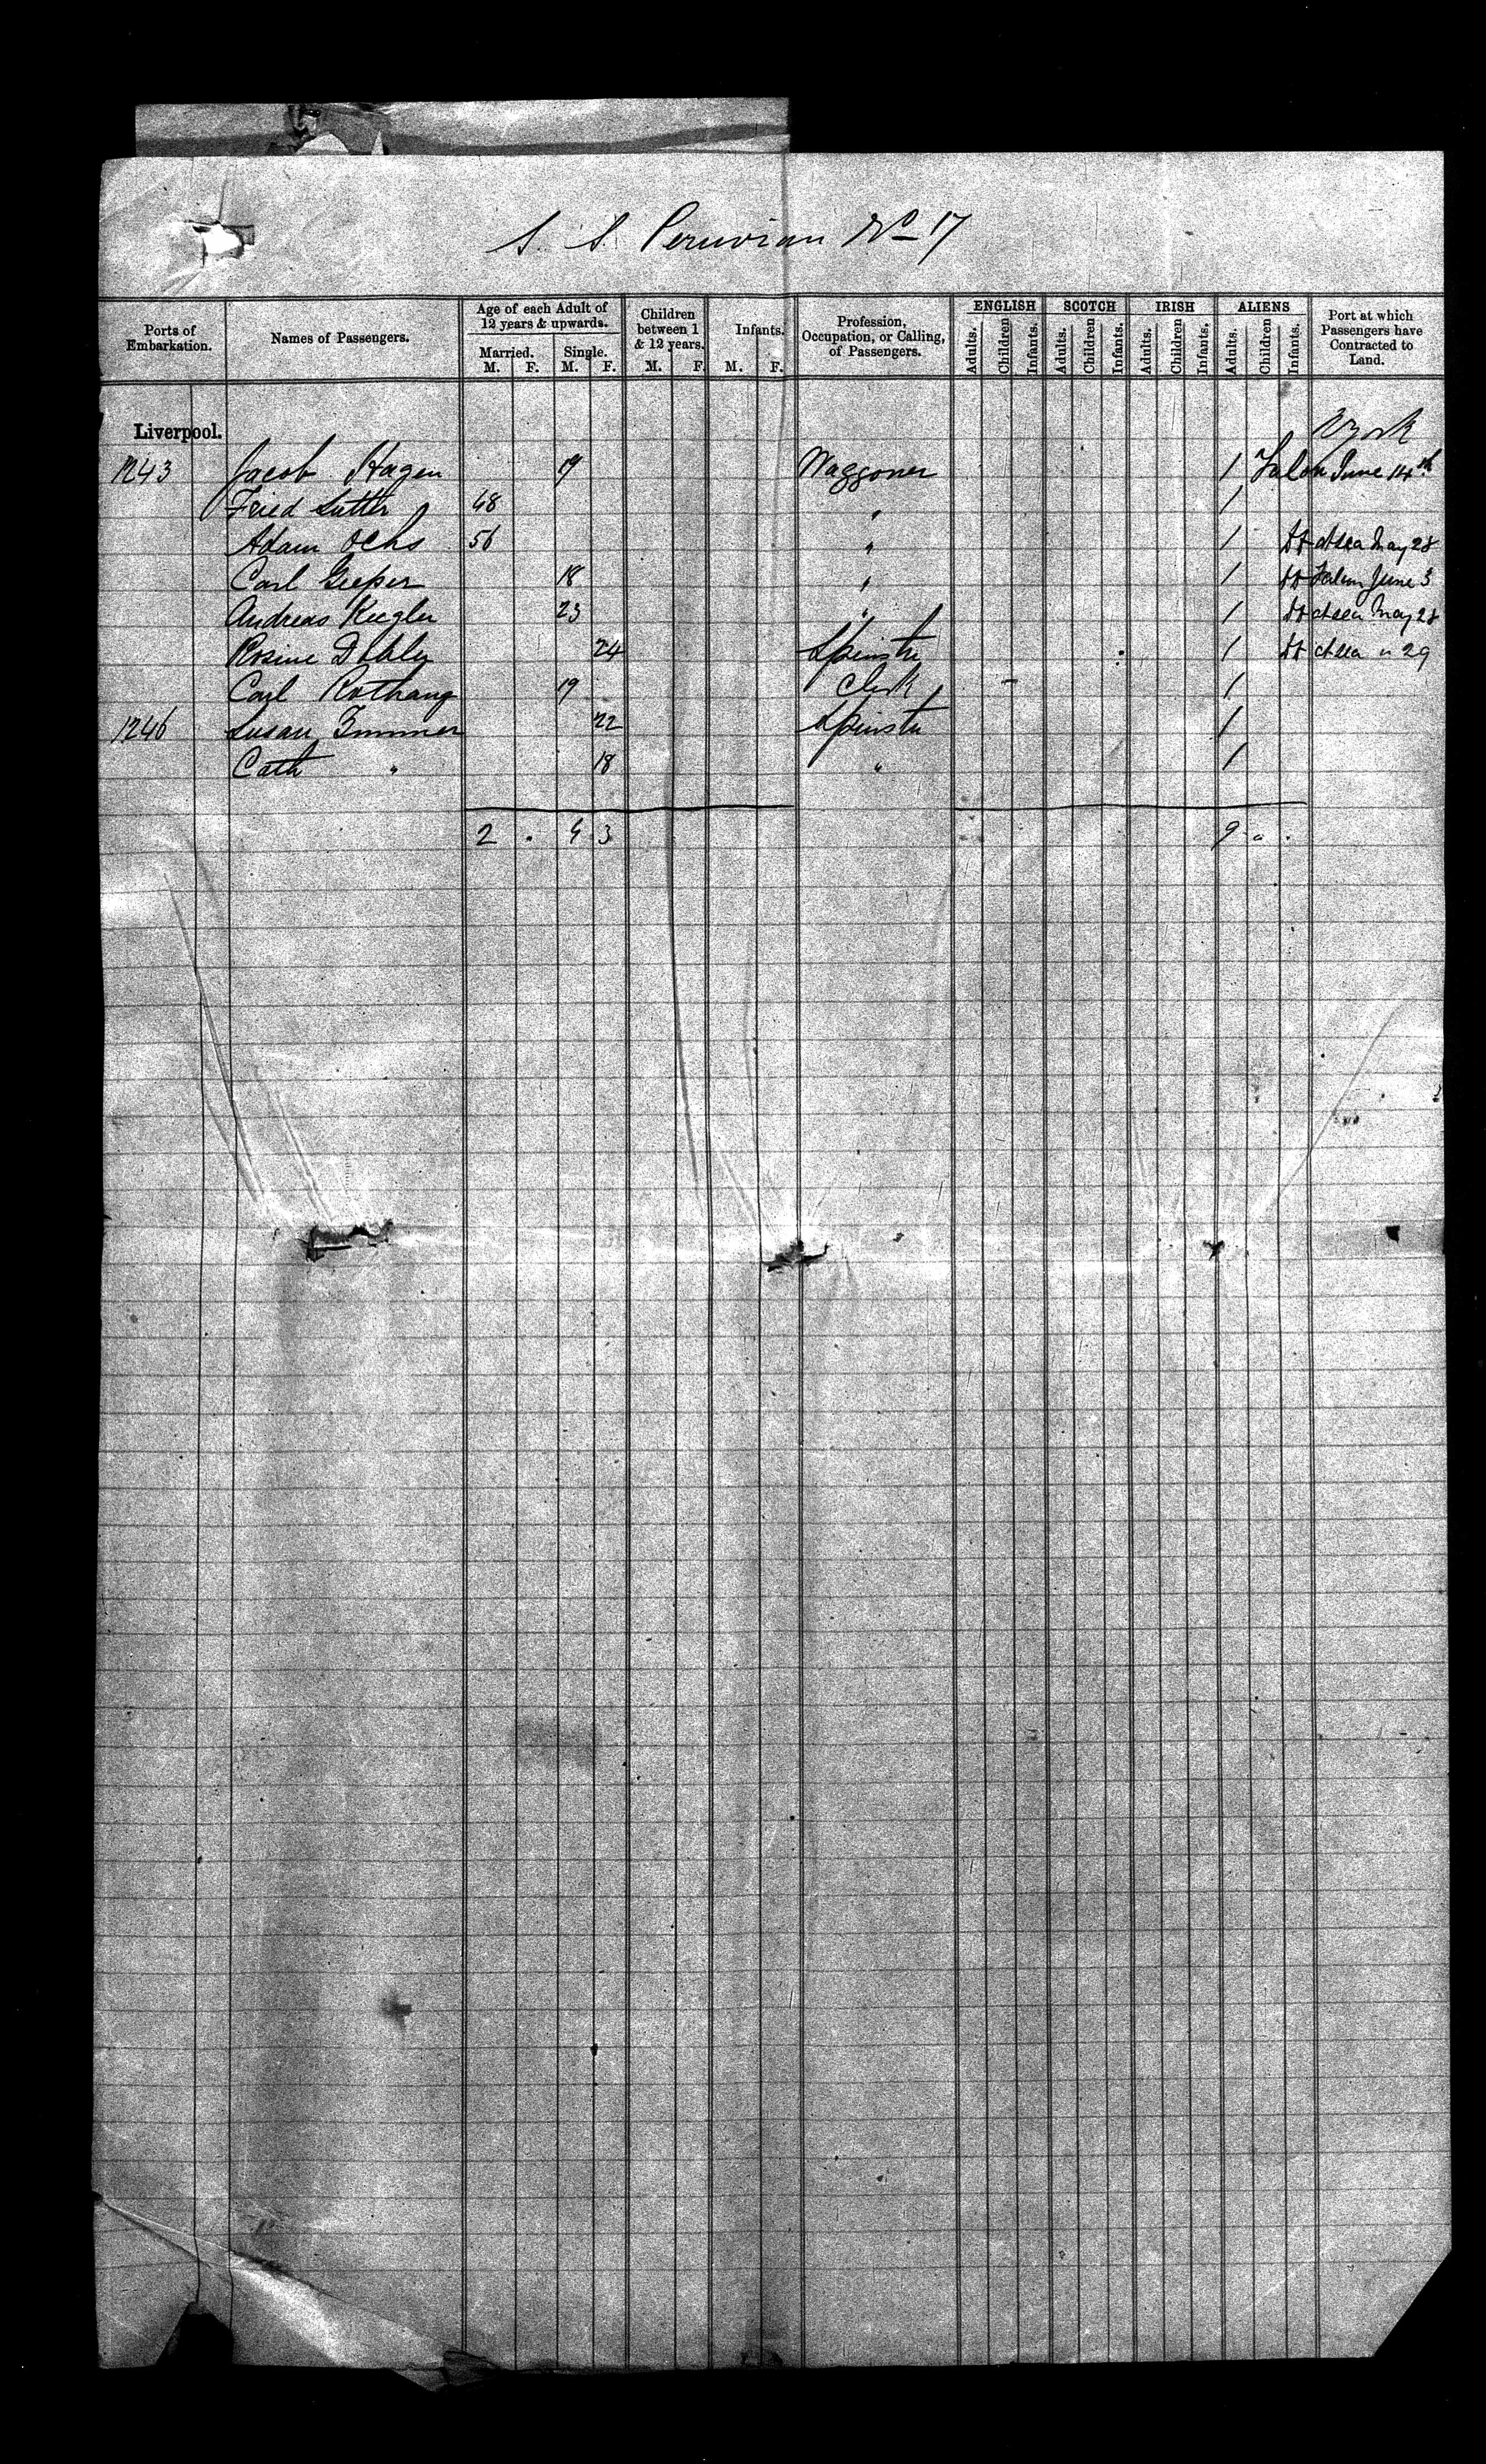 S. S. Peruvian No 17
Ports of Embarkation. Names of Passengers. Age of each Adult of 12 years & upwards. Children between 1 & 12 years. Infants. Profession, Occupation, or Calling, of Passengers. ENGLISH SCOTCH IRISH ALIENS Port at which Passengers have Contracted to Land.
Married. Single.
M. F. M. F. M. F. M. F. Adults. Children Infants. Adults. Children Infants. Adults. Children Infants. Adults. Children Infants.
Liverpool. N York
1243 Jacob Hagen 19 Waggoner 1 June 14th
Fried Sutter 48 " 1
Adam Ochs 56 " 1 May 28
Carl 18 " 1 June 3
Andreas Kugler 23 " 1 May 28
Rosine 24 Spinster 1 " 29
Carl 19 Clerk 1
1246 Susan Zimmer 22 Spinster 1
Cath " 18 " 1
2 . 4 3 9 " .